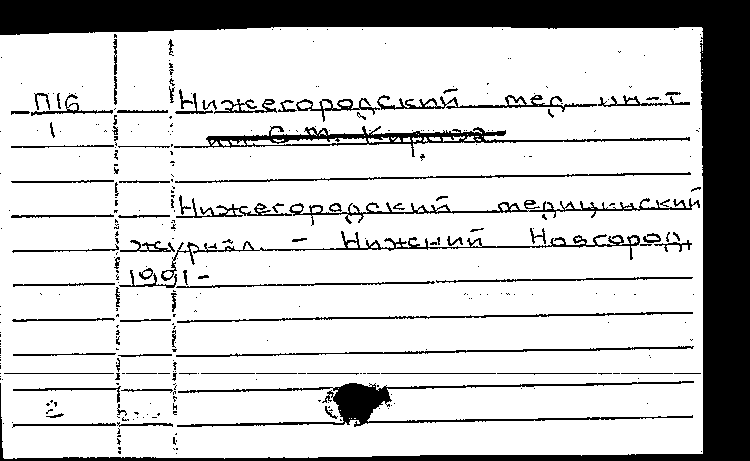 П16 Нижегородский мед ин-т
1 им С.М. Кирова
Нижегородский медицинский
журнал. - Нижний Новгород,
1991-
2